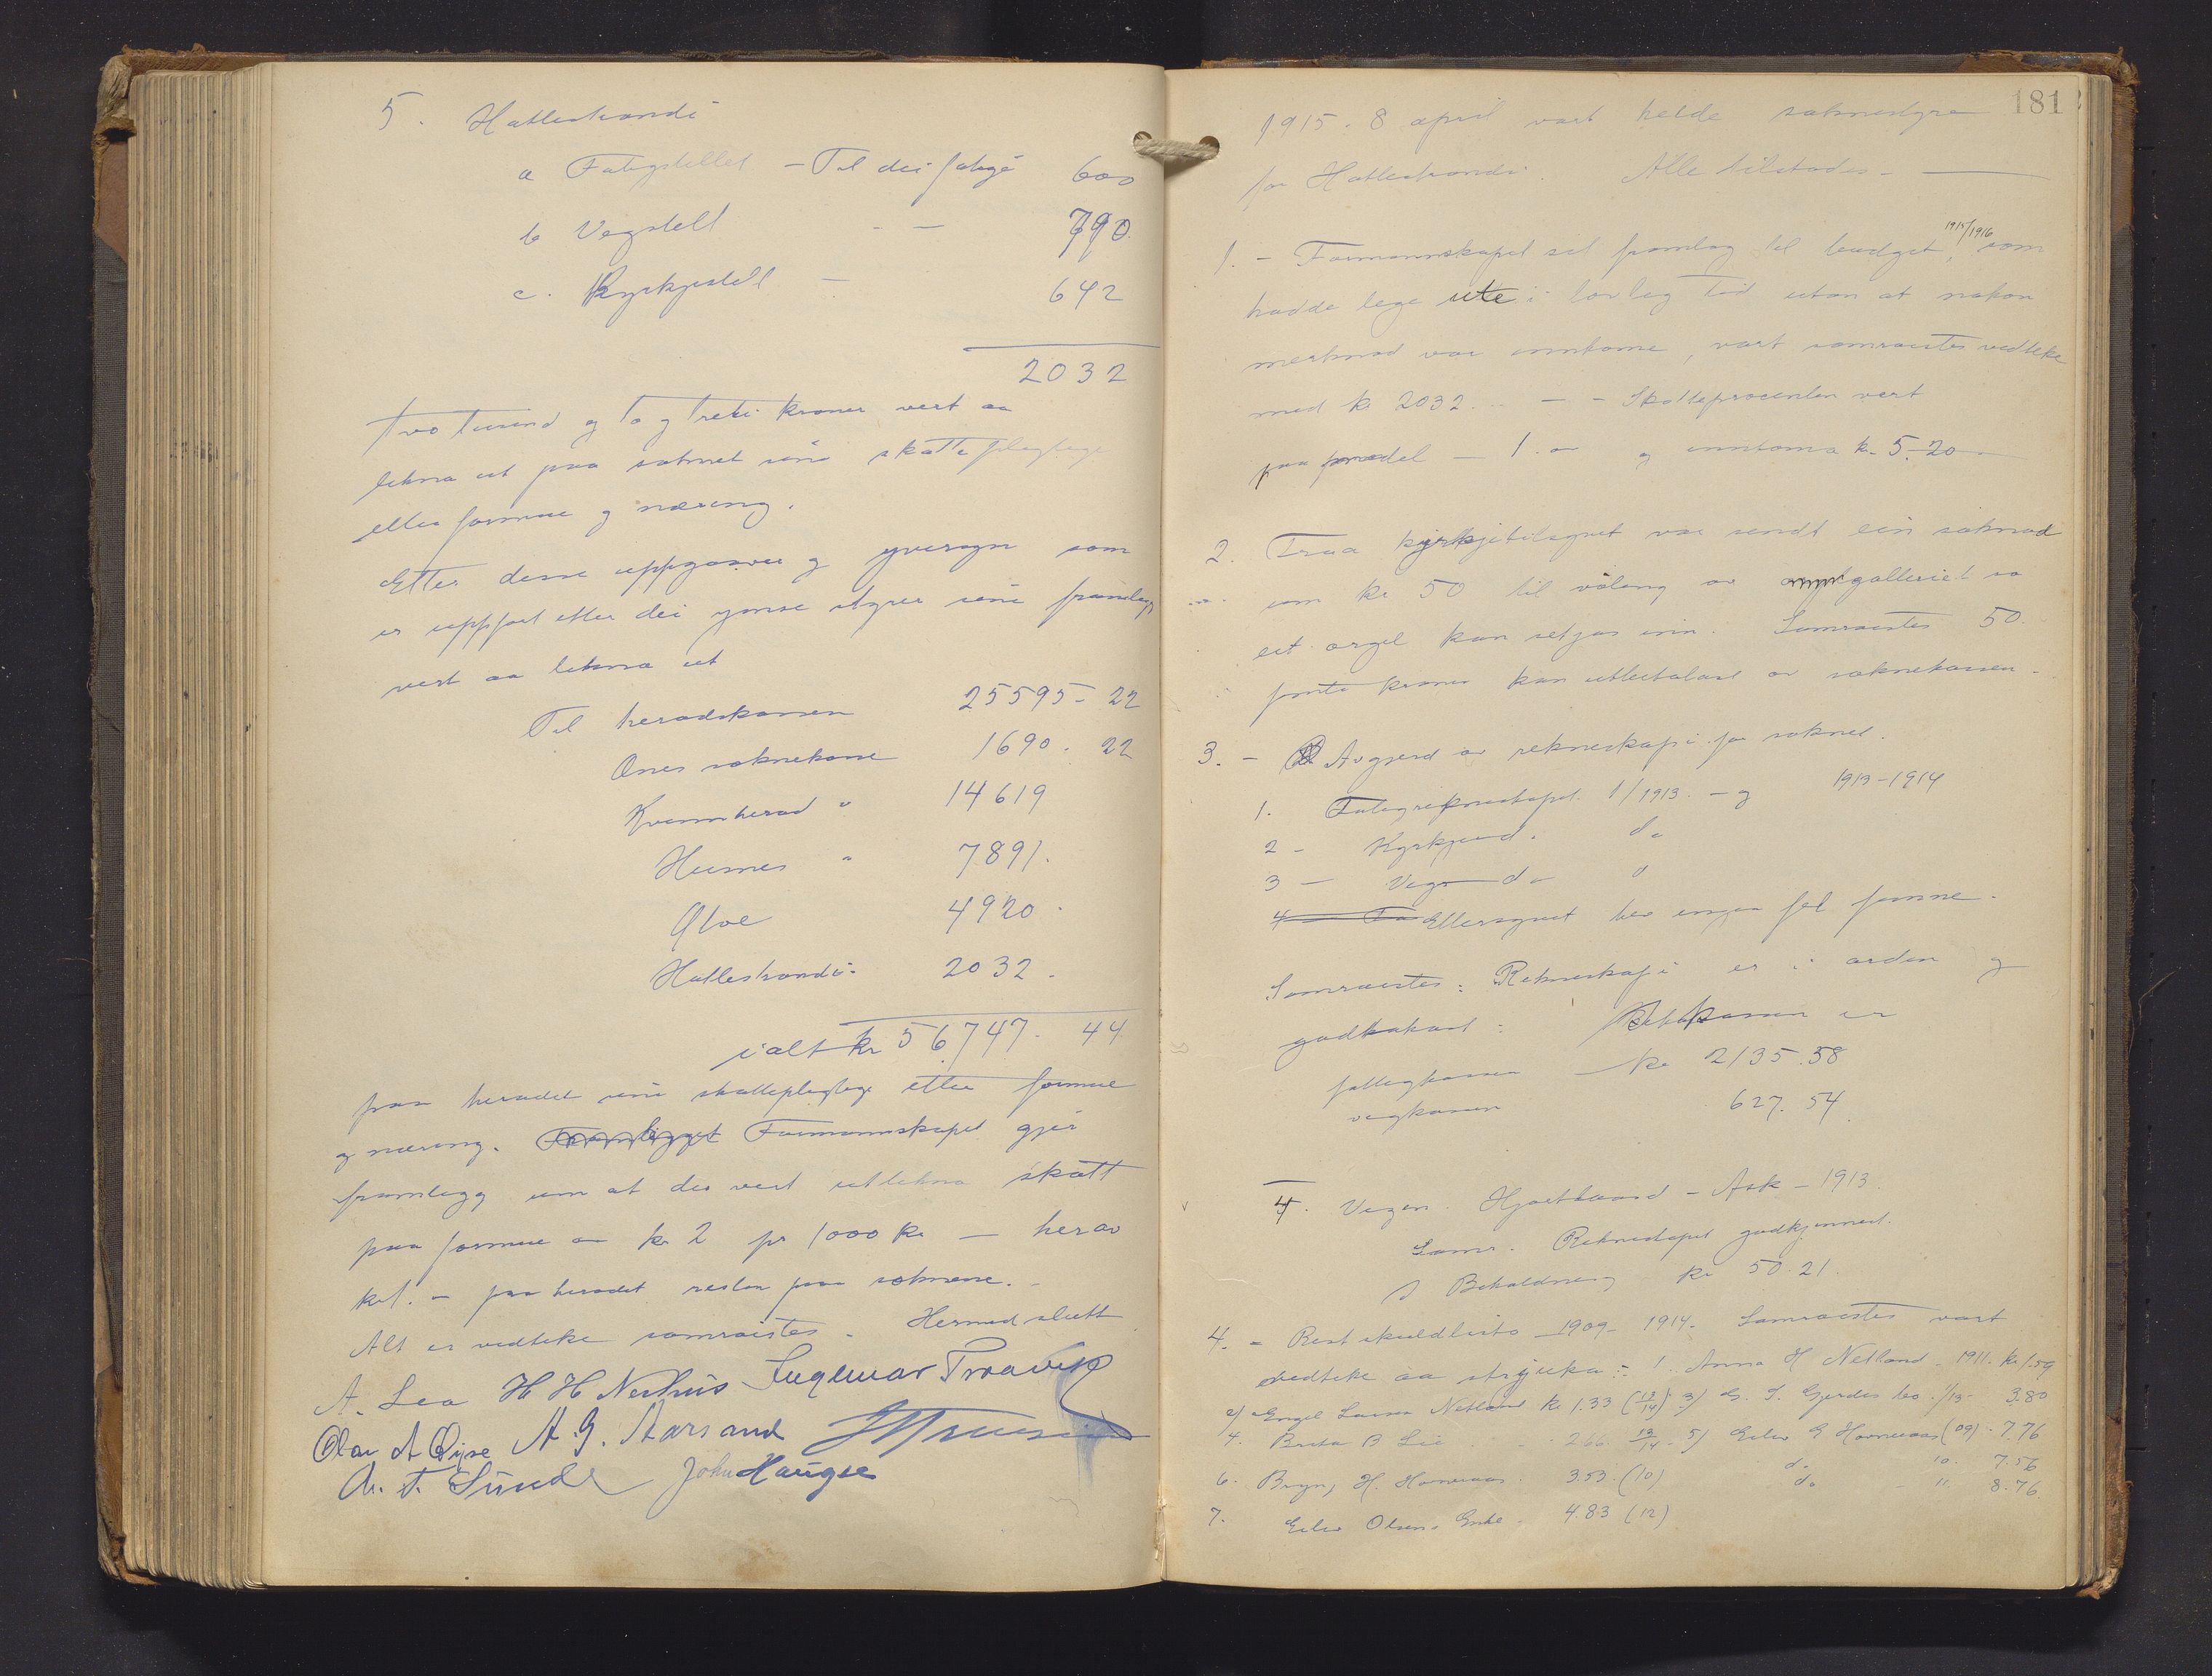 5. Hatlestrandi
a Fatigstellet - Til dei fatige 600
b Vegstell - - 790.
c. Kyrkjestell - 642
2032
Tvo tusend og to og treti kronor vert aa
likna ut paa soknet sine skatteplegtige
etter formue og næring.
Etter desse uppgaaver og yversyn som
er uppført etter dei ymse styre sine framlegg
vert aa likna ut
Til heradskassen 25595 - 22
Ænes soknekasse 1690. 22
Kvinnherad " 14619
Husnes " 7891.
Ølve 4920.
Hatlestrandi 2032.
ialt kr 56747. 44
paa heradet sine skatteplegtige etter formue
og næring. Framlegget Formannskapet gjer
framlegg um at der vert utlikna skatt
paa formue av kr 2 pr 1000 kr - herav
kr 1. - paa heradet resten paa soknene. -
Alt er vedteke samrøistes. Hermed slutt
A. Lea H H Nerhus Ingemar Traavik
Olav A Øye A. G. Aarsand
A. T. Sunde John Haugse
181
1915. 8 april vart helde soknestyre
for Hatlestrandi. Alle tilstades. -
1. - Formannskapet sit framlag til budget, 1915/1916 som
hadde lege ute i lovleg tid utan at nokon
merknad var innkome, vart samrøistes vedteke
med kr 2032. - - Skatteprocenten vert
paa formue - 1. av og inntoma k. 5.20
2. Fraa kyrkjetilsynet var sendt ein søknad
um kr 50 til maling av galleriet so
eit orgel kan setjas inn. Samrøistes 50.
femti kroner kan utbetalast av soknekassen.
3. - Avgjerd av rekneskapi for soknet.
1. Fatigrekneskapet 1/1913. - og 1913-1914
2 - Kyrkje d. do
3 - Vegr do "
4 Ettersynet hev ingen feil funne.
Samrøistes: Rekneskapi er i orden og
godkakast: Kassa er
fattigkassen kr 2135.58
vegkassen 627.54
4. Vegen. Hjartnaard - Ask - 1913.
Samr. Rekneskapet godkjennest.
Behaldning kr 50.21.
4. - Restskuldlista 1909 - 1914. Samrøistes vart
vedteke aa stryka: 1. Anna H Netland - 1911. kr 1.59
2) Engel Larsen Netland kr 1.33 (13/14) 3) G. S. Gjerdes bo 1/13 - 3.80
4. Brita B Lie - 2.66 13/14 - 5) Eilev G Hovneaas (09). 7.76
do 10. 7.56
6. Bryn, H. Hovneaas. 3.53. (10) do - 11. 8.76.
7. Eilev Olsens Enke - 4.83 (12)